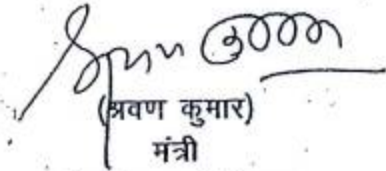 (श्रवण कुमार)
मंत्री